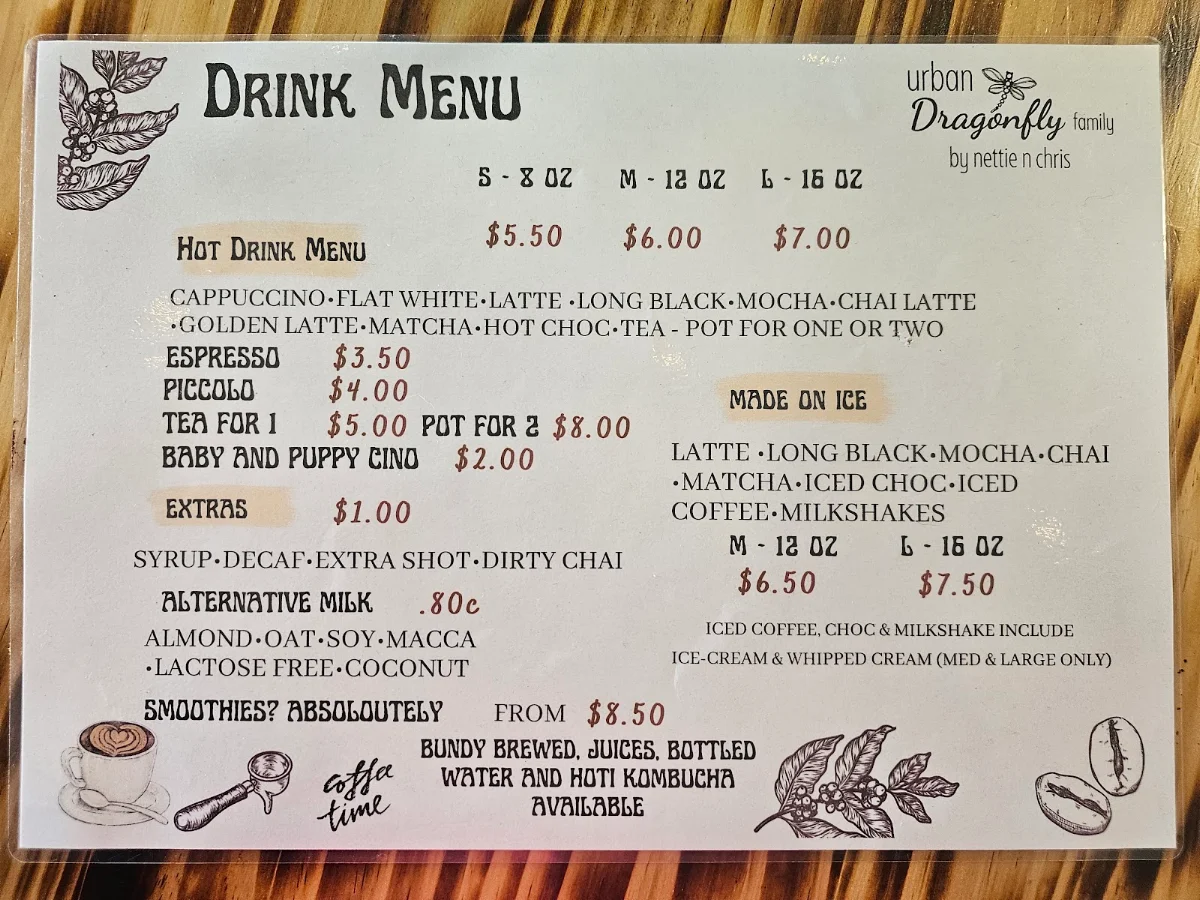 DRINK MENU
urban
Dragonfly family
by nettie n chris
S - 8 OZ M - 12 OZ L - 16 OZ
HOT DRINK MENU $5.50 $6.00 $7.00
CAPPUCCINO•FLAT WHITE•LATTE •LONG BLACK•MOCHA•CHAI LATTE
•GOLDEN LATTE•MATCHA•HOT CHOC•TEA - POT FOR ONE OR TWO
ESPRESSO $3.50
PICCOLO $4.00
TEA FOR 1 $5.00 POT FOR 2 $8.00
BABY AND PUPPY CINO $2.00
EXTRAS $1.00
SYRUP•DECAF•EXTRA SHOT•DIRTY CHAI
ALTERNATIVE MILK .80c
ALMOND•OAT•SOY•MACCA
•LACTOSE FREE•COCONUT
MADE ON ICE
LATTE •LONG BLACK•MOCHA•CHAI
•MATCHA•ICED CHOC•ICED
COFFEE•MILKSHAKES
M - 12 OZ L - 16 OZ
$6.50 $7.50
ICED COFFEE, CHOC & MILKSHAKE INCLUDE
ICE-CREAM & WHIPPED CREAM (MED & LARGE ONLY)
SMOOTHIES? ABSOLOUTELY FROM $8.50
coffee
time
BUNDY BREWED, JUICES, BOTTLED
WATER AND HOTI KOMBUCHA
AVAILABLE